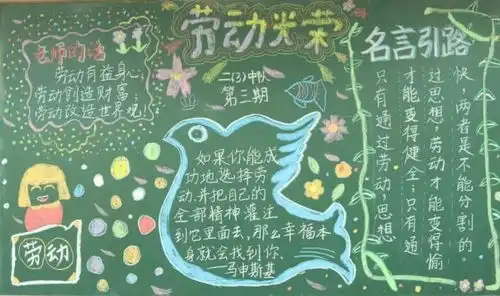 劳动光荣
二(3)中队
第三期
老师的话
劳动有益身心;
劳动创造财富;
劳动改造世界观!
劳动
如果你能成
功地选择劳
动,并把自己的
全部精神灌注
到它里面去,那么幸福本
身就会找到你.
——马申斯基
名言引路
只有通过劳动,思想
才能变得健全;只有通
过思想,劳动才能变得愉
快,两者是不能分割的